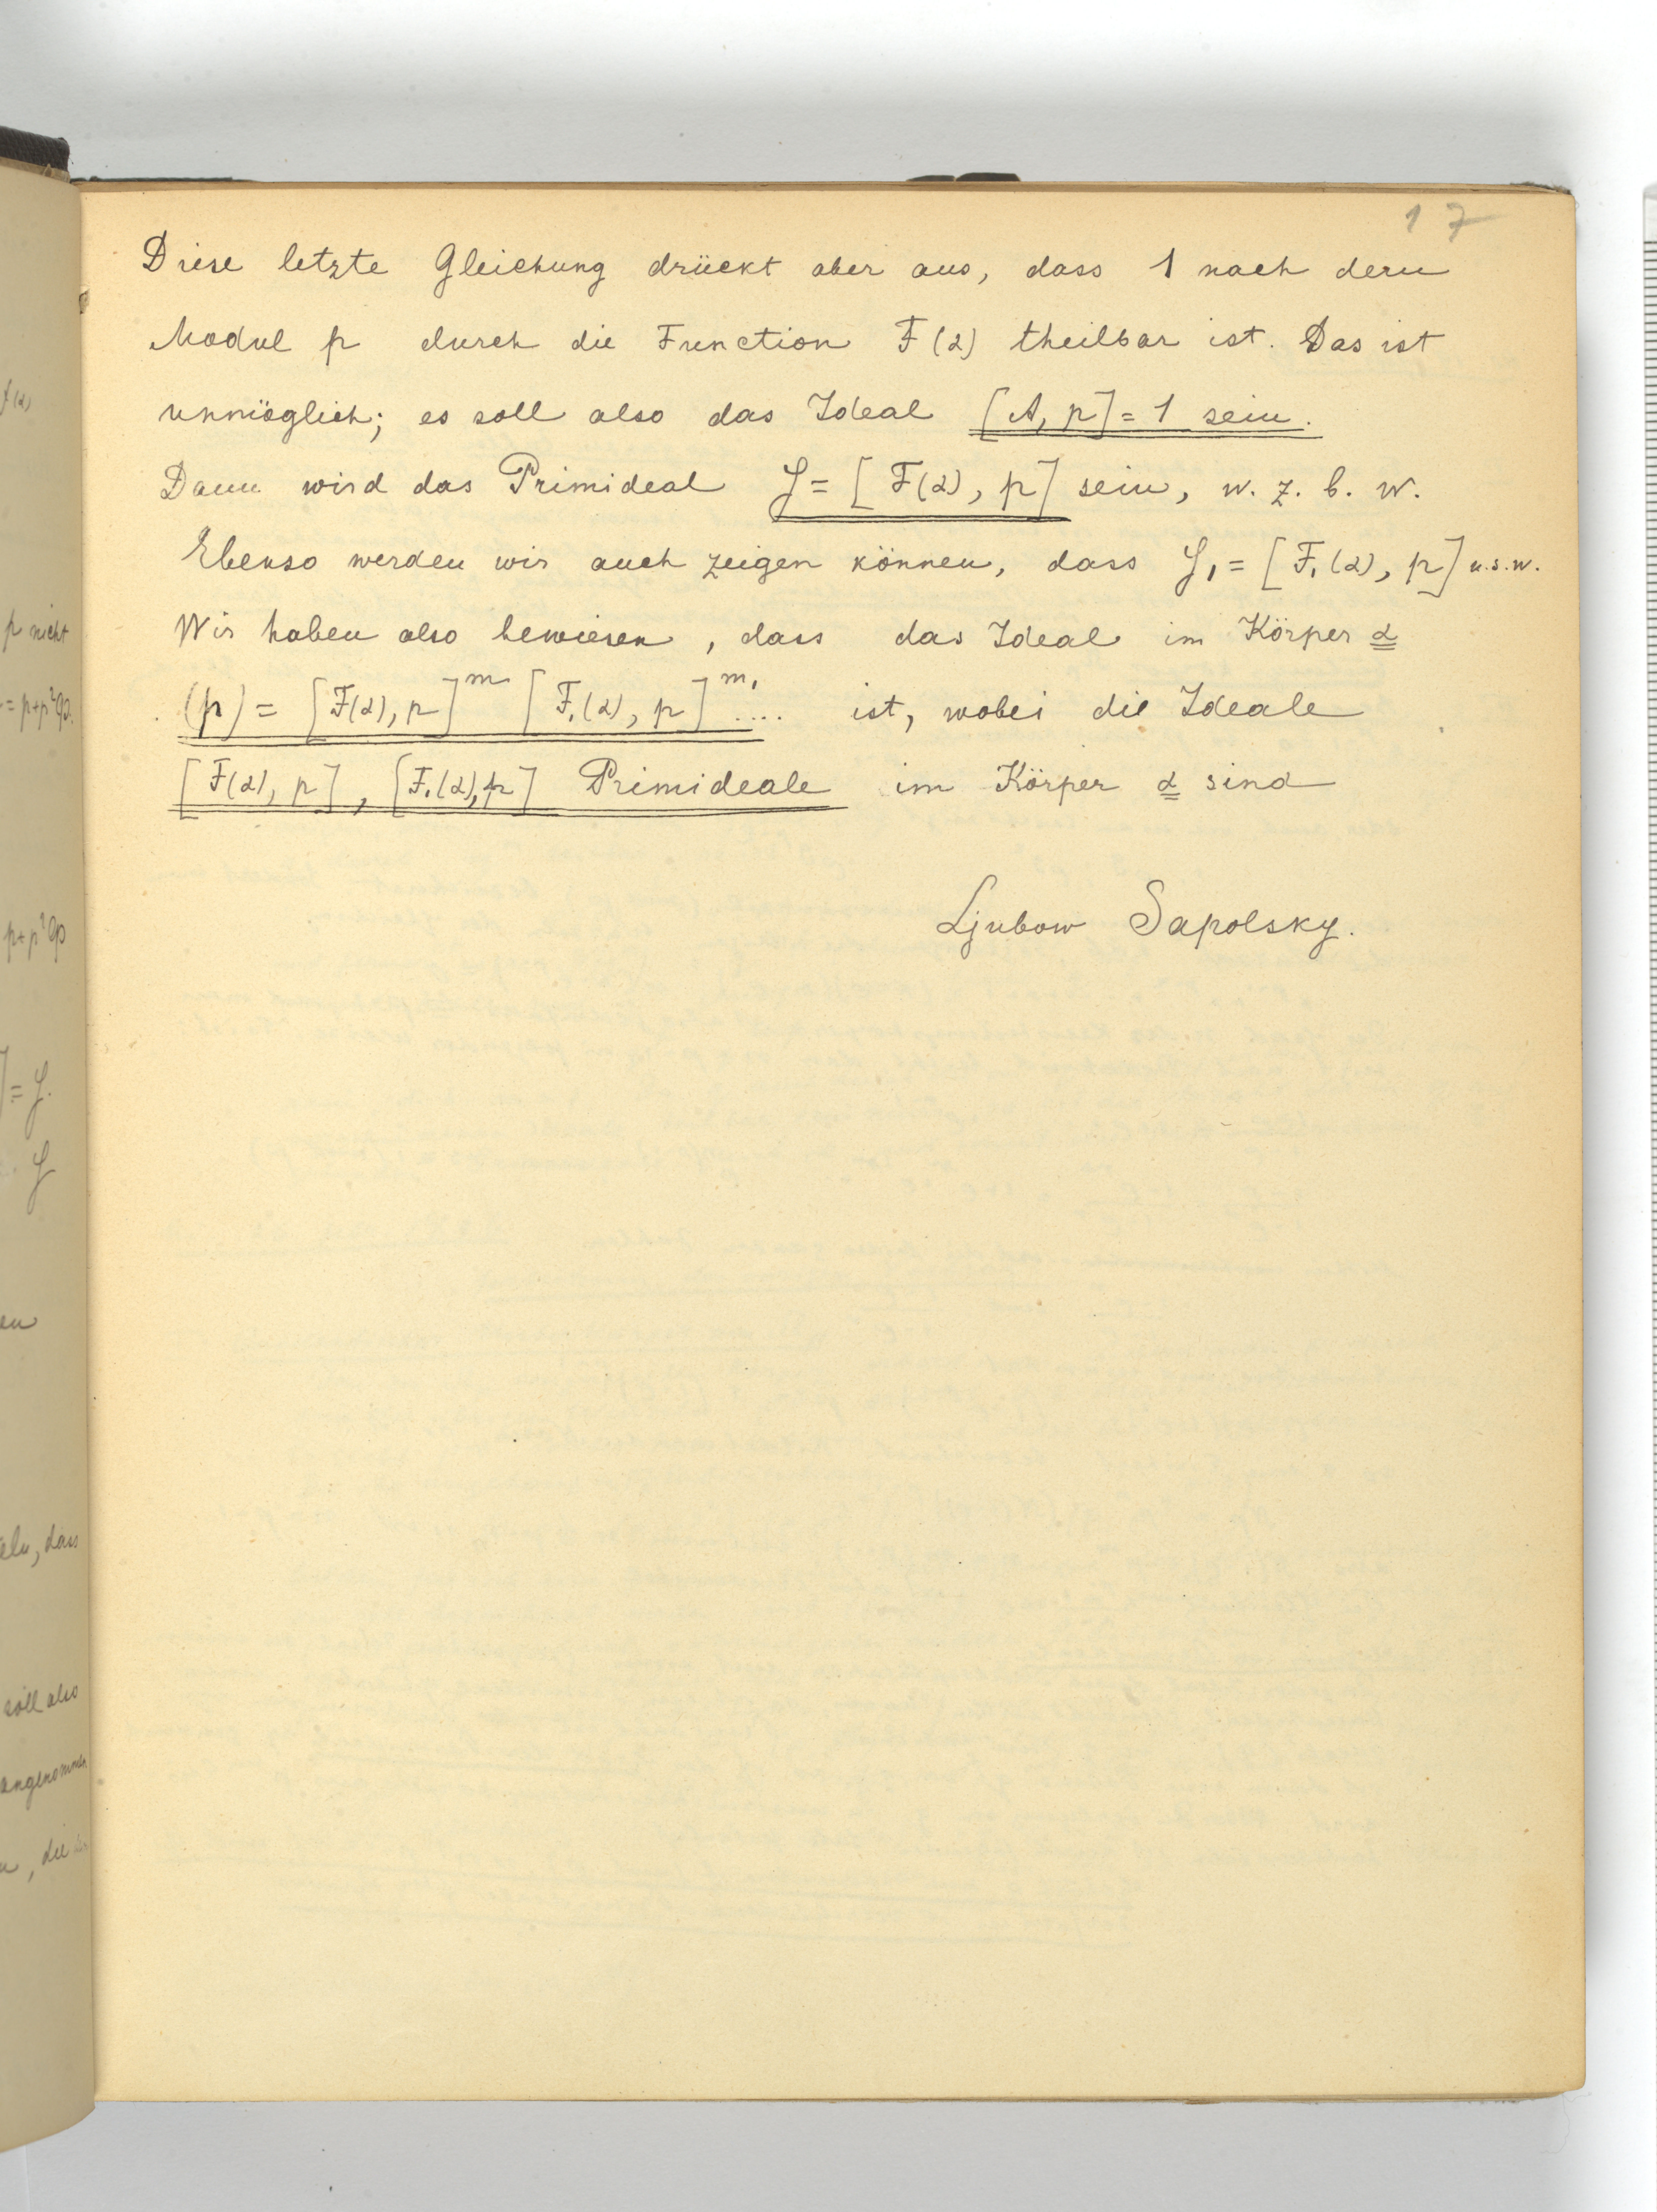 17
Diese letzte Gleichung drückt aber aus, dass 1 nach dem
Modul p durch die Function F(α) theilbar ist. Das ist
unmöglich; es soll also das Ideal [A, p] = 1 sein.
Dann wird das Primideal 𝒴 = [F(α), p] sein, w. z. b. w.
Ebenso werden wir auch zeigen können, dass 𝒴₁ = [F₁(α), p] u.s.w.
Wir haben also bewiesen, dass das Ideal im Körper α
(p) = [F(α), p]^m [F₁(α), p]^m₁ .... ist, wobei die Ideale
[F(α), p], [F₁(α), p] Primideale im Körper α sind
Ljubow Sapolsky.
p nicht
= p+p²φ.
p+p²φ
] = 𝒴.
𝒴
en
eln, dass
soll also
angenommen
, die